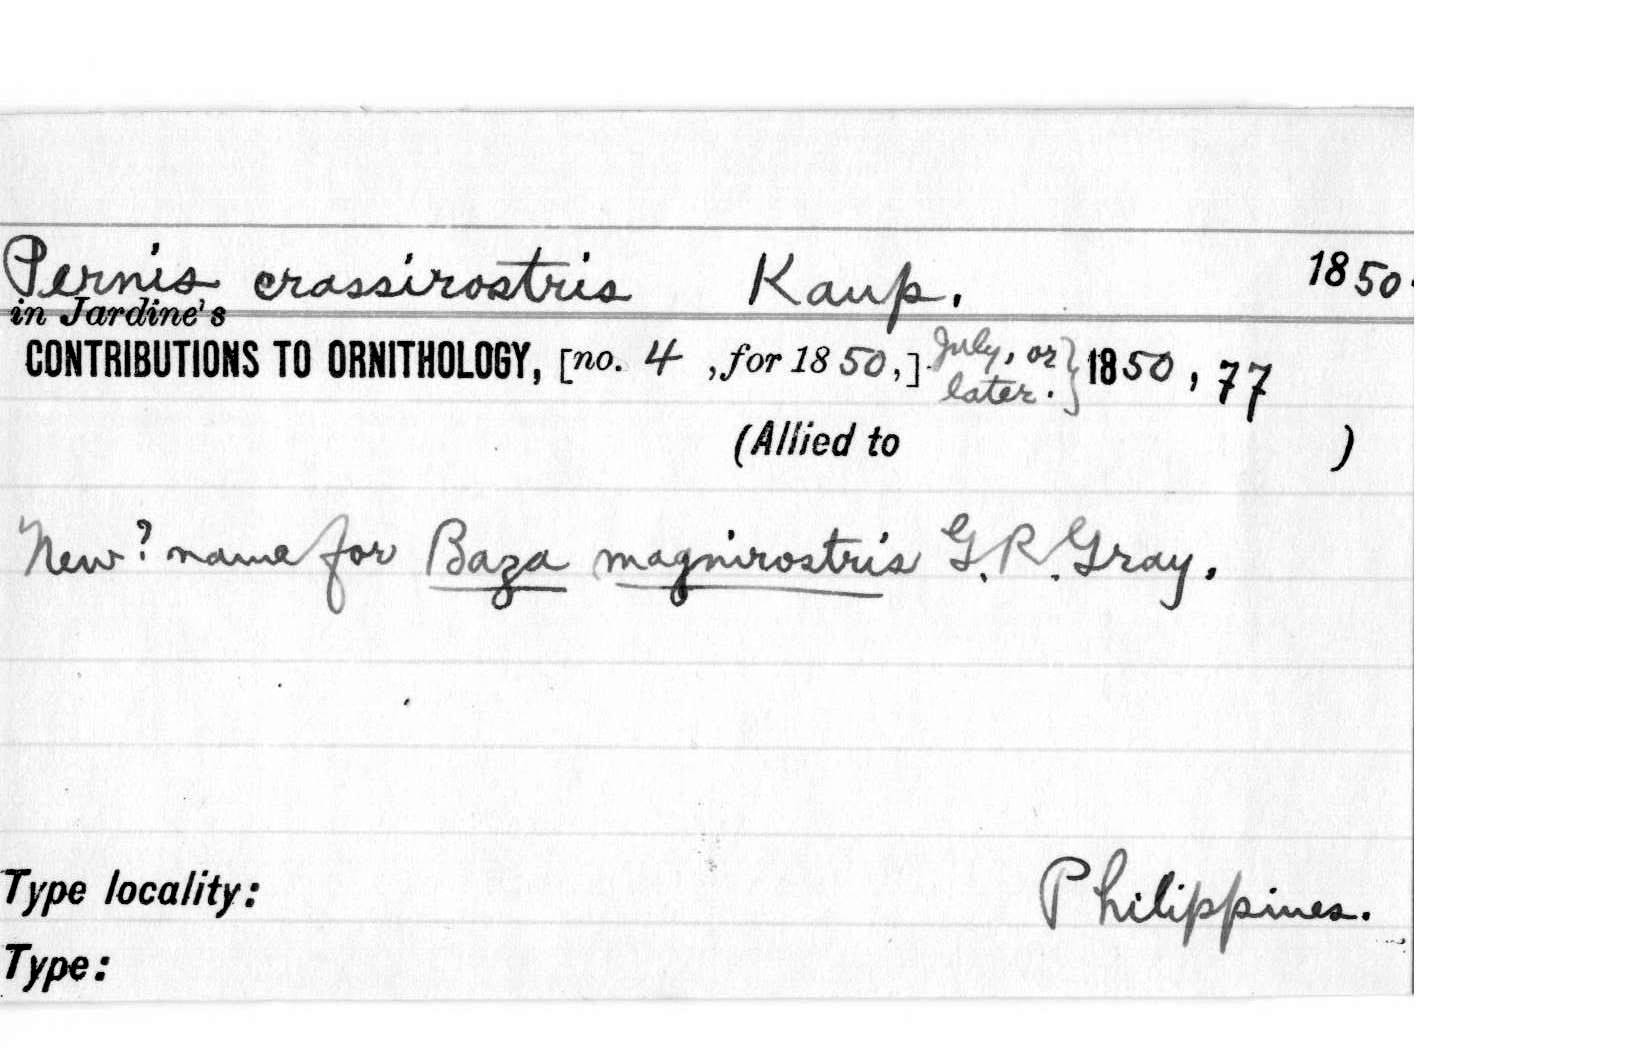 Pernis crassirostris Kaup. 1850.
in Jardine's
CONTRIBUTIONS TO ORNITHOLOGY, [no. 4 , for 1850,] July, or later. } 1850, 77
(Allied to )
New? name for Baza magnirostris G. R. Gray.
Type locality: Philippines.
Type: